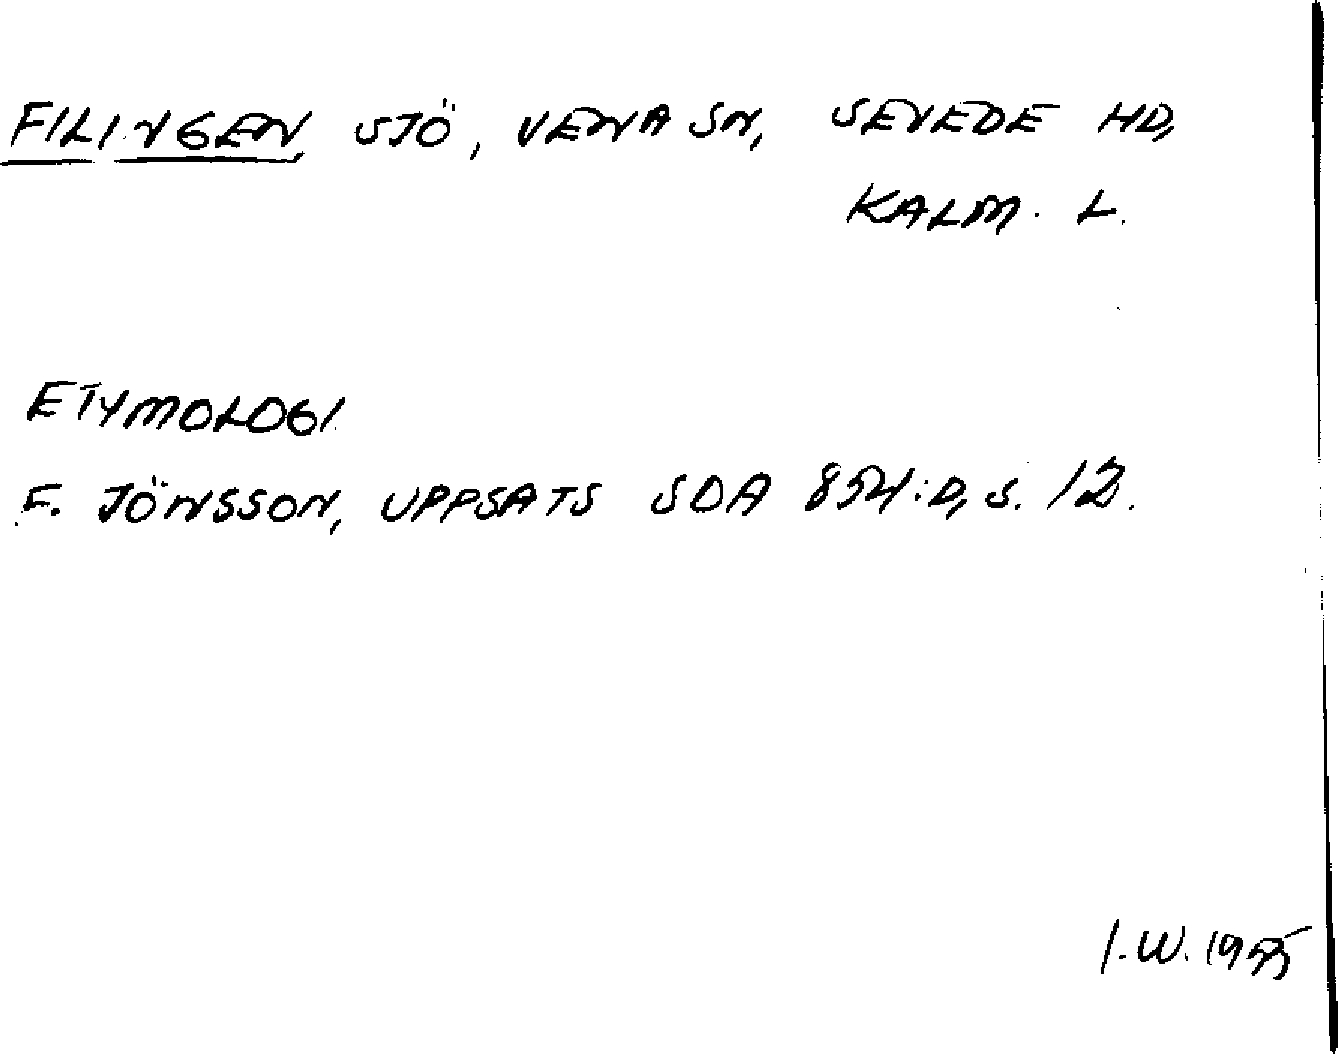 FILINGEN SJÖ, VENA SN, SEVEDE HD,
KALM. L.
ETYMOLOGI
F. JÖNSSON, UPPSATS SOA 854:D, S. 12.
I.W. 1955